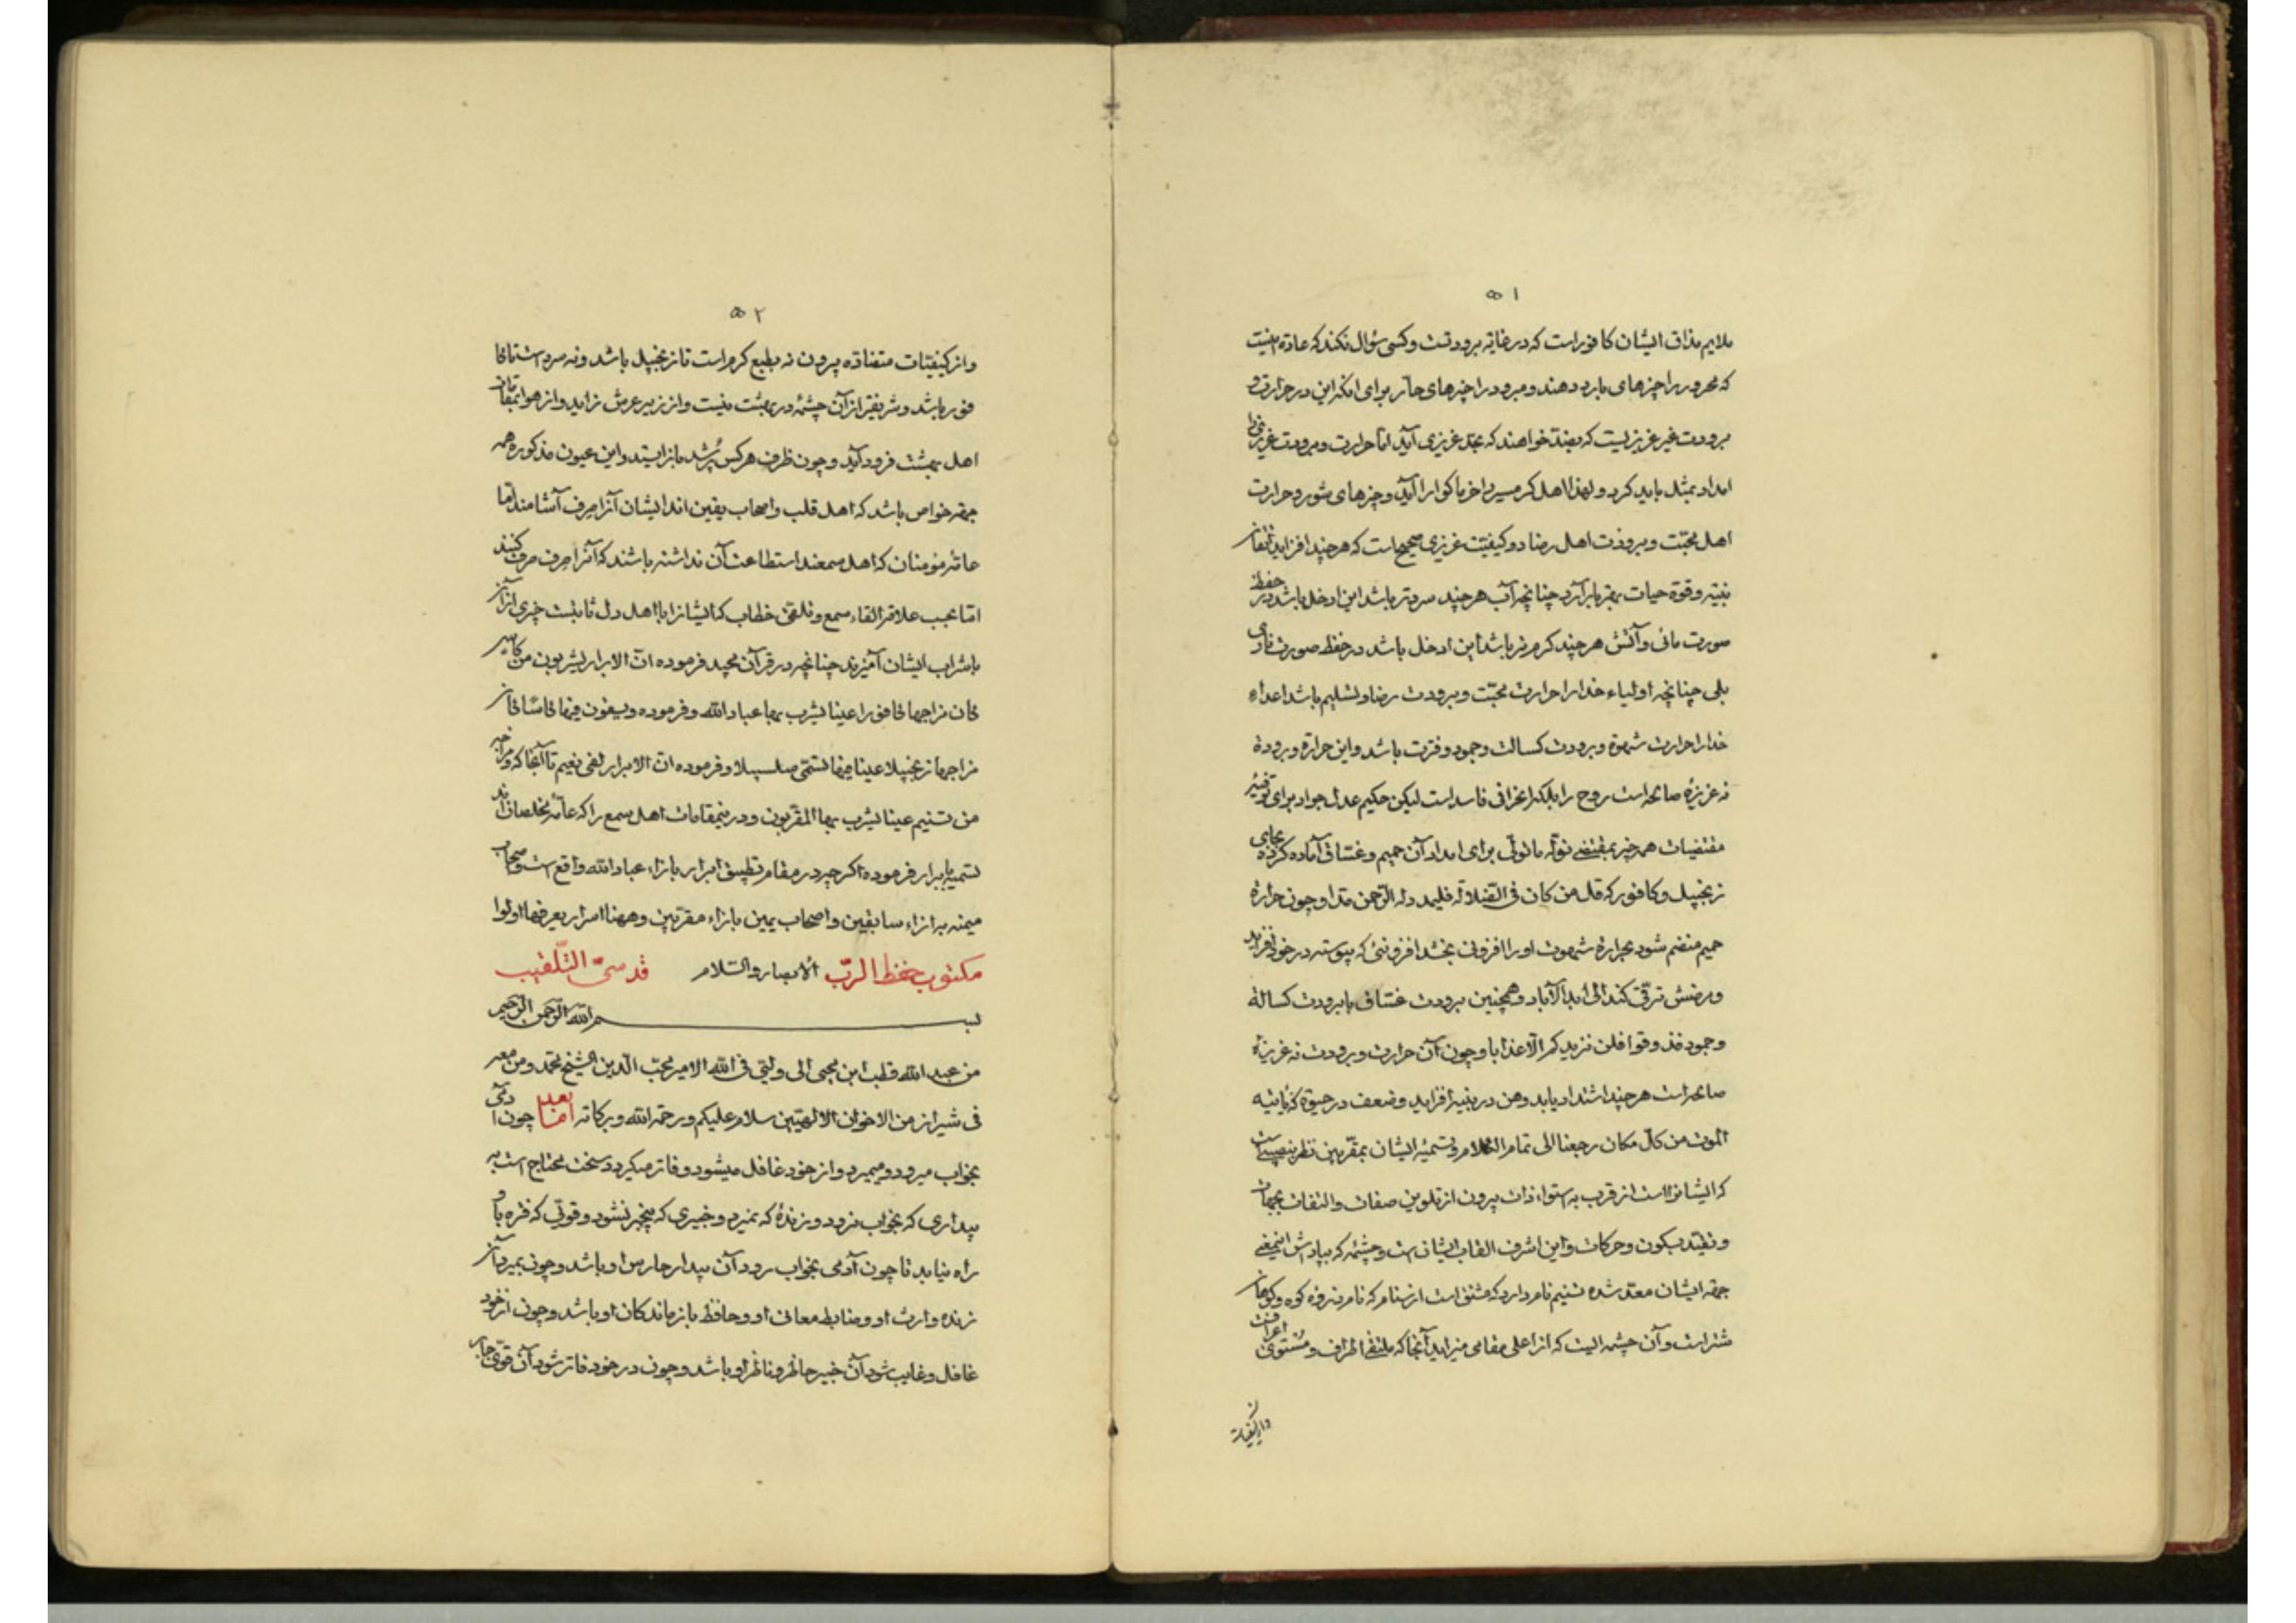 ۵۱
ملایم مذاق ایشان کافور است که در غایة برودتست وکسی سؤال نکند که عادة اینست
که محرور را چیزهای بارد دهند و مبرود را چیزهای حار برای آنکه این در حرارت و
برودت غیر غریزیست که بضد خواهند که بحد غریزی آید اما حرارت و برودت غریزی را
امداد بمثل باید کرد و لهذا اهل کرمسیر را خرما کوارا آید و چیزهای شور و حرارت
اهل محبّت و برودت اهل رضا دو کیفیّت غریزی صحیح است که هر چند افزاید
بنیه و قوة حیات بیفزاید چنانچه آب هر چند سردتر باشد این ادخل باشد در حفظ
صورت مائی و آتش هر چند کرم تر باشد این ادخل باشد در حفظ صورت ناری
بلی چنانچه اولیاء خدا را حرارت محبّت و برودت رضا و تسلیم باشد اعداء
خدا را حرارت شهوة و برودت کسالت و جمود و فترت باشد و این حرارة و برودة
نه غریزهٔ صالحه است روح را بلکه انحرافی فاسد است لیکن حکیم عدل جواد برای توفیر
مقتضیات همه چیز بمقتضی نولّه ما تولّی برای امداد آن حمیم و غسّاق آماده کرده بجای
زنجبیل و کافور که قل من کان فی الضّلالة فلیمدد له الرّحمن مدا و چون حرارة
حمیم منضم شود بحرارة شهوت او را افزونی بخشد افزونئی که پیوسته در خود افزاید
و برضش ترقّی کند الی ابد الآباد و همچنین برودت غسّاق با برودت کسالة
و جمود فذوقوا فلن نزیدکم الّا عذابا و چون آن حرارت و برودت نه غریزهٔ
صالحه است هر چند اشتداد یابد وهن در بنیه افزاید و ضعف در حیوة که یأتیه
الموت من کلّ مکان رجعنا الی تمام الکلام و تسمیهٔ ایشان بمقرّبین نظر بنصیبی است
که ایشانرا است از قرب به استواء ذات بیرون از تلوین صفات و التفات بجهات
و تقیّد بسکون و حرکات و این اشرف القاب ایشانست و چشمه که بپاداش این معنی
جهة ایشان معدّ شده تسنیم نام دارد که مشتق است از سنام که نام ذروهٔ کوه و کوهان
شتر است و آن چشمه ایست که از اعلی مقامی میزاید آنجا که ملتقی اطراف و مستوی اعرافست
و از کیفیّات
۵۲
و از کیفیّات متضادّه بیرون نه بطبع کرم است تا زنجبیل باشد و نه سرد است تا کا
فور باشد و شریفتر از آن چشمهٔ در بهشت نیست و از زیر عرش زاید و از هوا بمقامات
اهل بهشت فرود آید و چون ظرف هر کس پُر شد بازایستد و این عیون مذکوره همه
جهة خواص باشد که اهل قلب و اصحاب یقین اند ایشان آنرا صِرف آشامند امّا
عامّهٔ مؤمنان که اهل سمعند استطاعت آن نداشته باشند که آنرا صِرف صرف کنند
امّا بحسب علاقهٔ القاء سمع و تلقّی خطاب که ایشانرا با اهل دل ثابتست چیزی از آن
با شراب ایشان آمیزند چنانچه در قرآن مجید فرموده انّ الابرار یشربون من کاس
کان مزاجها کافورا عینا یشرب بها عباد الله و فرموده و یسقون فیها کاسًا کان
مزاجها زنجبیلا عینا فیها تسمّی سلسبیلا و فرموده انّ الابرار لفی نعیم تا آنجا که و مزاجه
من تسنیم عینا یشرب بها المقرّبون و درین مقامات اهل سمع را که عامّهٔ مخلصان اند
تسمیه بابرار فرموده اکر چه در مقام تطبیق ابرار بازاء عباد الله واقع است و اصحاب
میمنه بر ازاء سابقین و اصحاب یمین بازاء مقرّبین و ههنا اسرار یعرفها اولوا
الابصار والسّلام مکتوب حفظ الربّ قدسیّ التّلقیب
بسم الله الرّحمن الرّحیم
من عبد الله قطب ابن محیی الی ولیّی فی الله الامیر محبّ الدین الشیخ محمّد و من معه
فی شیراز من الاخوان الالهیّین سلام علیکم و رحمة الله و برکاته امّا بعد چون آدمی
بخواب میرود و میمیرد و از خود غافل میشود و فاتر میکردد سخت محتاج است به
بیداری که بخواب نرود و زندهٔ که نمیرد و خبیری که بیخبر نشود و قوّتی که فتره باو
راه نیابد تا چون آدمی بخواب رود آن بیدار حارس او باشد و چون بمیرد آن
زنده وارث او و ضابط معانی او و حافظ بازماندکان او باشد و چون از خود
غافل و غایب شود آن خبیر حاظر و ناظر او باشد و چون در خود فاتر شود آن قویّ